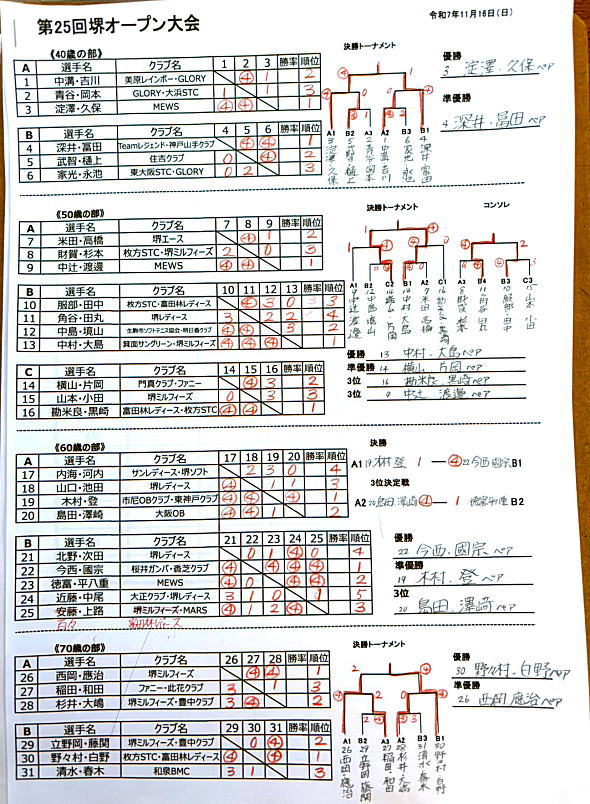 令和7年11月16日(日)
第25回堺オープン大会
《40歳の部》
A 選手名 クラブ名 1 2 3 勝率 順位
1 中溝・吉川 美原レインボー・GLORY ④ 1 2
2 青谷・岡本 GLORY・大浜STC 1 1 3
3 淀澤・久保 MEWS ④ ④ 1
B 選手名 クラブ名 4 5 6 勝率 順位
4 深井・冨田 Teamレジェンド・神戸山手クラブ ④ ④ 1
5 武智・樋上 住吉クラブ 0 ④ 2
6 家光・永池 東大阪STC・GLORY 0 2 3
決勝トーナメント
A1 B2 A3 A2 B3 B1
優勝
3 淀澤・久保ペア
準優勝
4 深井・冨田ペア
《50歳の部》
A 選手名 クラブ名 7 8 9 勝率 順位
7 米田・高橋 堺エース ④ 1 2
8 財賀・杉本 枚方STC・堺ミルフィーズ 2 0 3
9 中辻・渡邊 MEWS ④ ④ 1
B 選手名 クラブ名 10 11 12 13 勝率 順位
10 服部・田中 枚方STC・富田林レディース ④ 3 0 3
11 角谷・田丸 堺レディース 3 2 2 4
12 中島・境山 生駒市ソフトテニス協会・明日香クラブ ④ ④ 3 2
13 中村・大島 箕面サングリーン・堺ミルフィーズ ④ ④ ④ 1
C 選手名 クラブ名 14 15 16 勝率 順位
14 横山・片岡 門真クラブ・ファニー ④ 3 2
15 山本・小田 堺ミルフィーズ 0 3 3
16 勘米良・黒崎 富田林レディース・枚方STC ④ ④ 1
決勝トーナメント
コンソレ
A1 B2 C2 B1 A2 C1 A3 B4 B3 C3
優勝 13 中村・大島ペア
準優勝 14 横山・片岡ペア
3位 16 勘米良・黒崎ペア
3位 9 中辻・渡邊ペア
《60歳の部》
A 選手名 クラブ名 17 18 19 20 勝率 順位
17 内海・河内 サンレディース・堺ソフト 2 3 0 4
18 山口・池田 堺レディース ④ 1 1 3
19 木村・登 市尼OBクラブ・東神戸クラブ ④ ④ ④ 1
20 島田・澤崎 大阪OB ④ ④ 1 2
B 選手名 クラブ名 21 22 23 24 25 勝率 順位
21 北野・次田 堺レディース 0 1 ④ 0 4
22 今西・國宗 桜井ガンバ・香芝クラブ ④ ④ ④ ④ 1
23 徳富・平八重 MEWS ④ 0 ④ ④ 2
24 近藤・中尾 大正クラブ・堺レディース 3 1 0 1 5
25 安藤・上路 堺ミルフィーズ・MARS ④ 1 2 ④ 3
富田林レディース
決勝
A1 19 木村・登 1 ― ④ 22 今西・國宗 B1
3位決定戦
A2 20 島田・澤崎 ④ ― 1 徳富・平八重 B2
優勝
22 今西・國宗ペア
準優勝
19 木村・登ペア
3位
20 島田・澤崎ペア
《70歳の部》
A 選手名 クラブ名 26 27 28 勝率 順位
26 西岡・應治 堺ミルフィーズ ④ ④ 1
27 稲田・和田 ファニー・此花クラブ 3 1 3
28 杉井・大嶋 堺ミルフィーズ・豊中クラブ 3 ④ 2
B 選手名 クラブ名 29 30 31 勝率 順位
29 立野岡・藤関 堺ミルフィーズ・豊中クラブ 0 ④ 2
30 野々村・白野 枚方STC・富田林レディース ④ ④ 1
31 清水・春木 和泉BMC 3 1 3
決勝トーナメント
A1 B2 A3 A2 B3 B1
優勝
30 野々村・白野ペア
準優勝
26 西岡・應治ペア